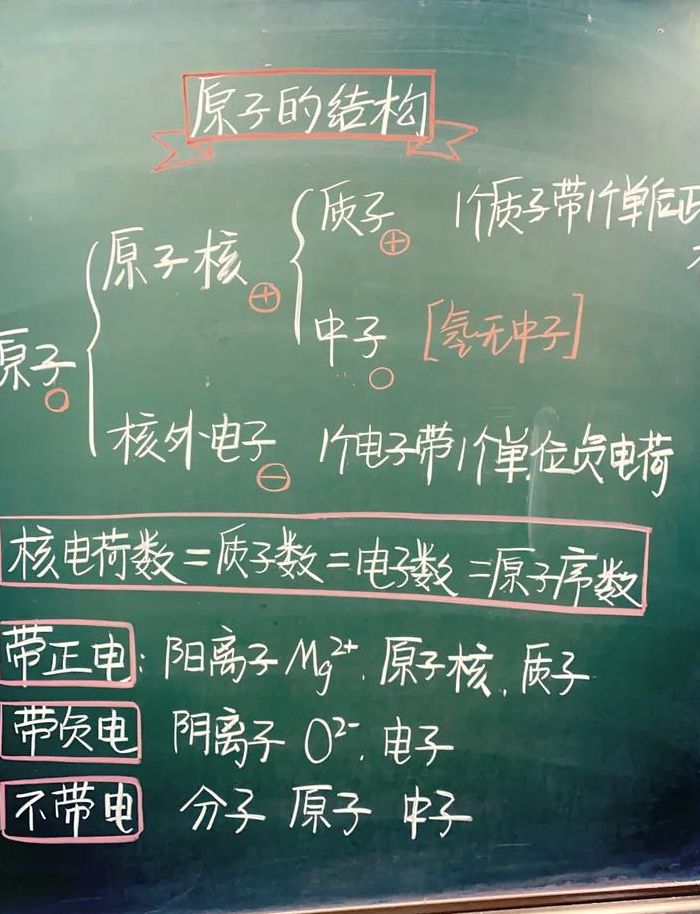 原子的结构
质子 1个质子带1个单位正
原子核 ⊕
⊕
中子 [氢无中子]
原子
核外电子 1个电子带1个单位负电荷
⊖
核电荷数=质子数=电子数=原子序数
带正电: 阳离子 Mg²⁺. 原子核. 质子
带负电 阴离子 O²⁻. 电子
不带电 分子 原子 中子